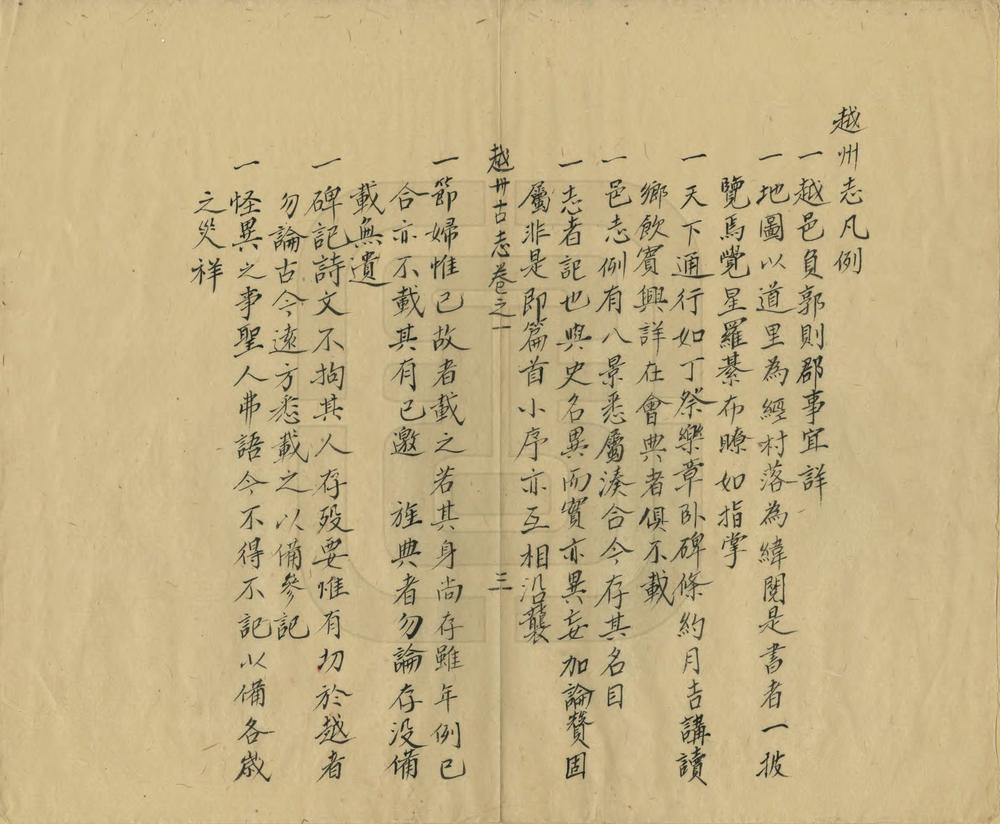 越州志凡例
一越邑負郭則郡事宜詳
一地圖以道里為經村落為緯閱是書者一披
覽焉覺星羅綦布瞭如指掌
一天下通行如丁祭樂章卧碑條約月吉講讀
鄉飲賓興詳在會典者俱不載
一邑志例有八景悉屬湊合今存其名目
一志者記也與史名異而實亦異妄加論贊固
屬非是即篇首小序亦互相沿襲
越州古志卷之一 三
一節婦惟已故者載之若其身尚存雖年例已
合亦不載其有已邀 旌典者勿論存没備
載無遺
一碑記詩文不拘其人存殁要惟有切於越者
勿論古今遠方悉載之以備參記
一怪異之事聖人弗語今不得不記以備各歲
之災祥